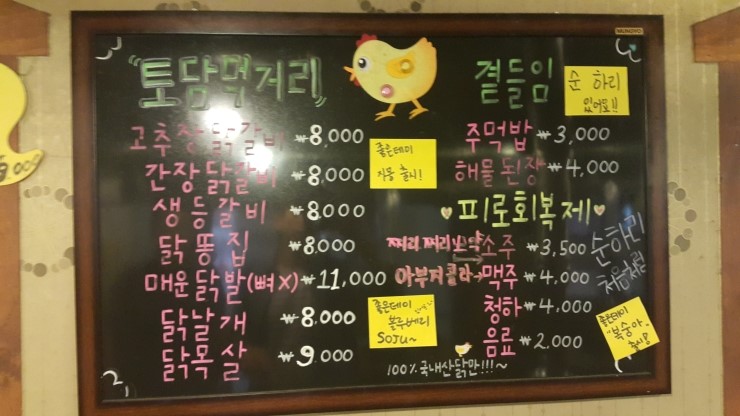 MUNGYO
"토담먹거리"
고추장닭갈비 ₩8,000
간장닭갈비 ₩8,000
생등갈비 ₩8,000
닭똥집 ₩8,000
매운닭발(뼈X) ₩11,000
닭날개 ₩8,000
닭목살 ₩9,000
좋은데이
자몽 출시!
좋은데이
블루베리
SOJU~
곁들임
순 하리
있어요!!
주먹밥 ₩3,000
해물된장 ₩4,000
♥피로회복제♥
찌리찌리 소주 ₩3,500
아부지콜라→맥주 ₩4,000
청하 ₩4,000
음료 ₩2,000
순하리
처음처럼
좋은데이
"복숭아"
출시!
100% 국내산닭만!!!~